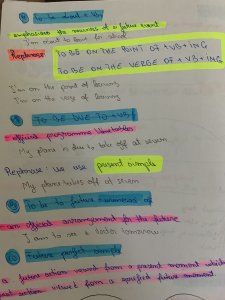 to be about + VB
emphasises the nearness of a future event
I'm about to leave for school
Rephrase: TO BE ON THE POINT OF + VB + ING
TO BE ON THE VERGE OF + VB + ING
I'm on the point of leaving
I'm on the verge of leaving
TO BE DUE TO + VB
official programme timetables
My plane is due to take off at seven
Rephrase: we use present simple
My plane takes off at seven
To be to future
an official arrangement for the future
I am to see a doctor tomorrow
Future perfect simple
a future action viewed from a present moment which
action viewed from a specified future moment